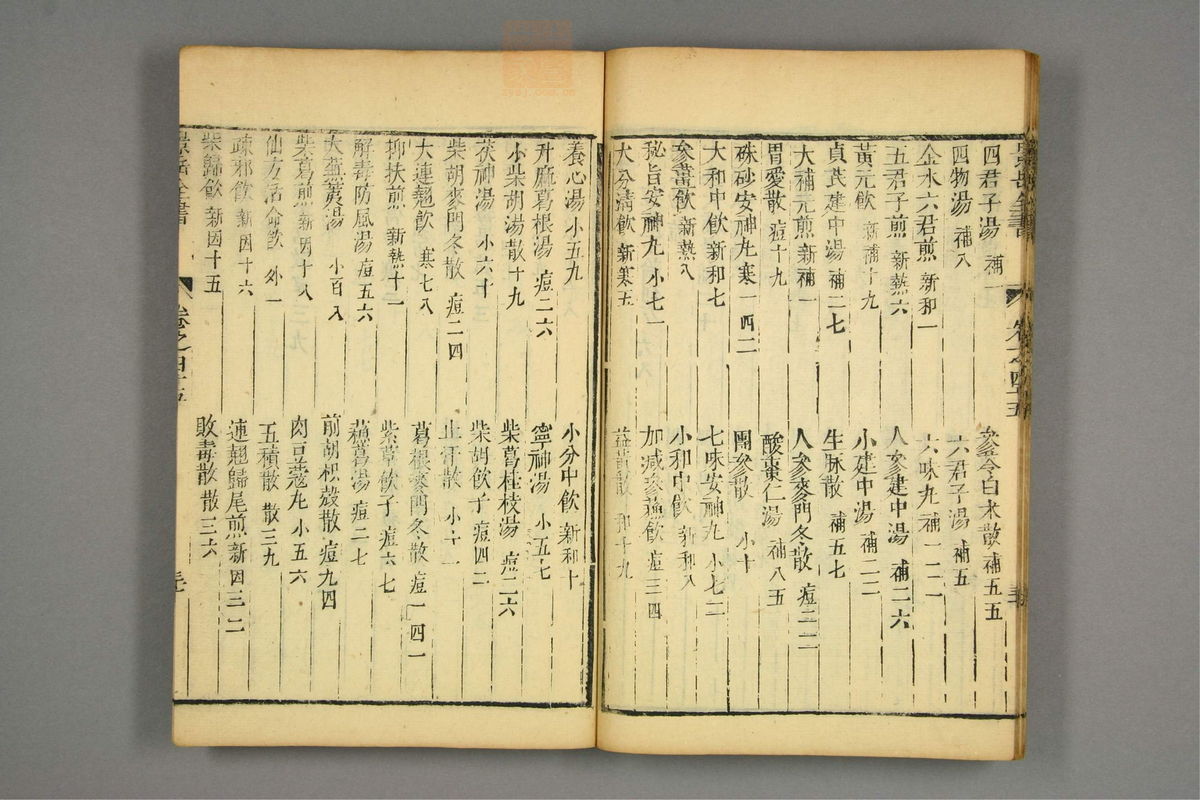 四君子湯 補一 參苓白朮散 補五五
四物湯 補八 六君子湯 補五
金水六君煎 新和一 六味丸 補一二一
五君子煎 新熱六 人參建中湯 補二六
黃元飲 新補十九 小建中湯 補二二
貞芪建中湯 補二七 生脉散 補五七
大補元煎 新補一 人參麥門冬散 痘二二
胃愛散 痘十九 酸棗仁湯 補八五
硃砂安神丸 寒一四二 團參散 小十
大和中飲 新和七 七味安神丸 小七二
參薑飲 新熱八 小和中飲 新和八
秘旨安神丸 小七一 加減參蘇飲 痘三四
大分清飲 新寒五 益黃散 和十九
養心湯 小五九 小分中飲 新和十
升麻葛根湯 痘二六 寧神湯 小五七
小柴胡湯 散十九 柴葛桂枝湯 痘二六
茯神湯 小六十 柴胡飲子 痘四二
柴胡麥門冬散 痘二四 止汗散 小十一
大連翹飲 寒七八 葛根麥門冬散 痘一四一
抑扶煎 新熱十一 紫草飲子 痘六七
解毒防風湯 痘五六 蘇葛湯 痘二七
大蕪荑湯 小百八 前胡枳殼散 痘九四
柴葛煎 新因十八 肉豆蔻丸 小五六
仙方活命飲 外一 五積散 散三九
疎邪飲 新因十六 連翹歸尾煎 新因三二
柴歸飲 新因十五 敗毒散 散三六
景岳全書 卷之四十五